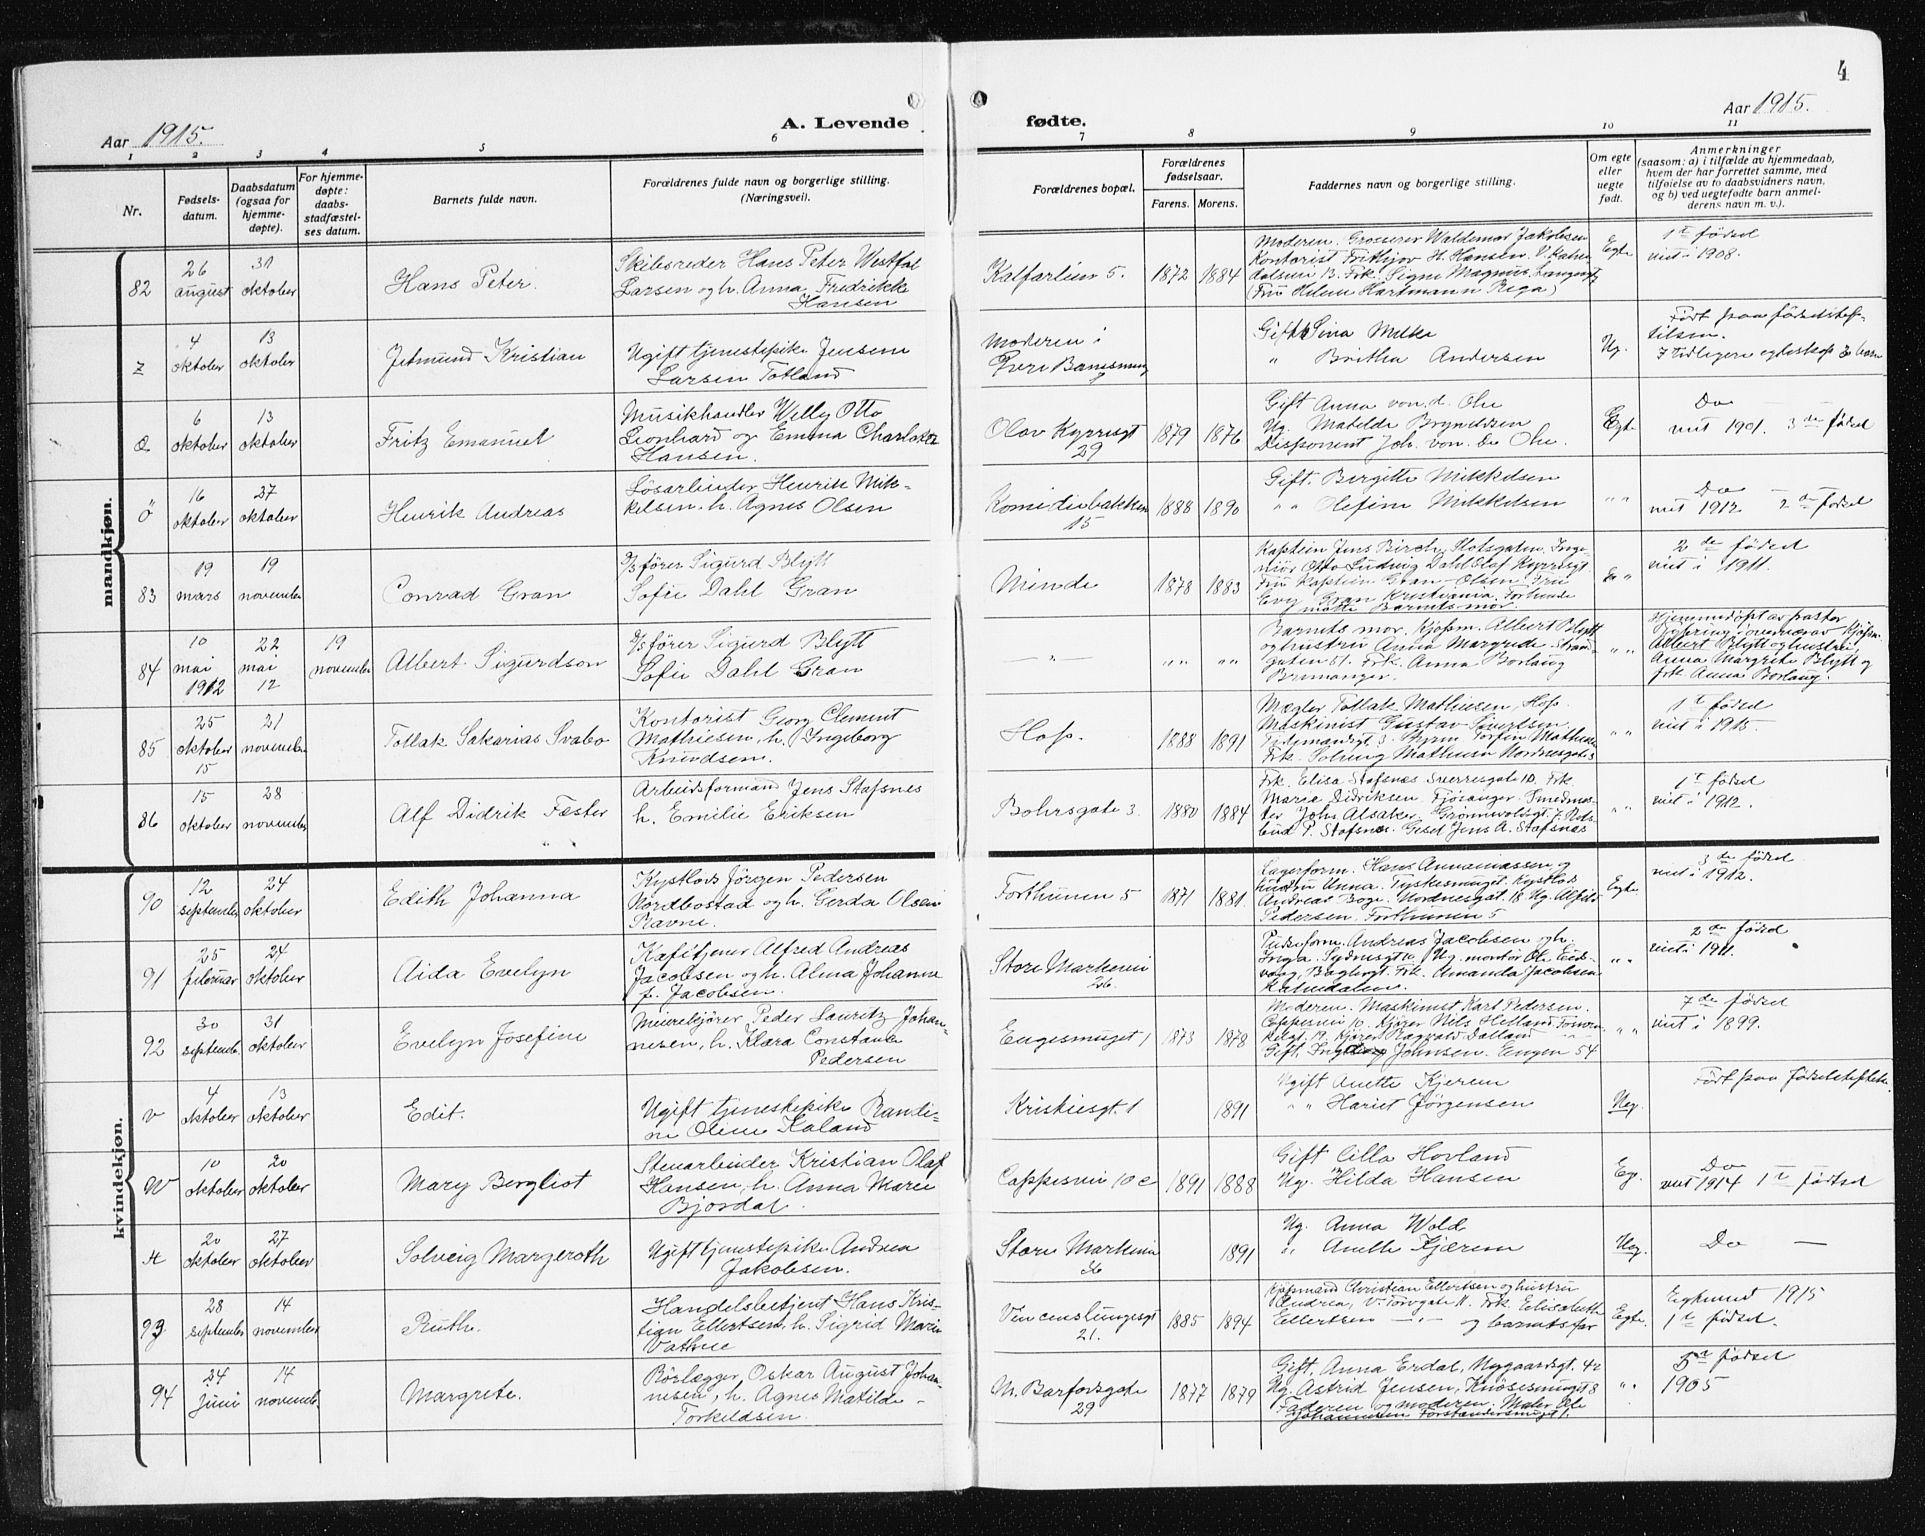 4
Aar 1915.
A. Levende
fødte.
Aar 1915.
1 2 3 4 5 6 7 8 9 10 11
Nr.
Fødsels-
datum.
Daabsdatum
(ogsaa for
hjemme-
døpte).
For hjemme-
døpte:
daabs-
stadfæstel-
ses datum.
Barnets fulde navn.
Forældrenes fulde navn og borgerlige stilling.
(Næringsvei).
Forældrenes bopæl.
Forældrenes
fødselsaar.
Farens. Morens.
Faddernes navn og borgerlige stilling.
Om egte
eller
uegte
født.
Anmerkninger
(saasom: a) i tilfælde av hjemmedaab,
hvem der har forrettet samme, med
tilføielse av to daabsvidners navn,
og b) ved uegtefødte barn anmel-
derens navn m. v.).
mandkjøn.
82
26
august
31
oktober
Hans Peter.
Skibsreder Hans Peter Westfal
Larsen og h. Anna Fredrikke
Hansen
Kalfarlien 5.
1872 1884
Moderen. Grosserer Waldemar Jakobsen
Kontorist Frithjov H. Hansen, V. Kalve-
dalsvei B. Frk. Signe Magnus,
(Fru Helene Hartmann Riga)
Egte
1ste fødsel
viet i 1908.
z
4
oktober
13
oktober
Jetmund Kristian
Ugift tjenestepike Jensem
Larsen Totland
Moderen i
1
Gift Sina Melke
" Britha Andersen
Ug.
Født paa fødselsstif-
tilsen.
7 tidligere egteskap 3 barn
æ
6
oktober
13
oktober
Fritz Emanuel
Musikhandler Welly Otto
Leonhard og Emma Charlotte
Hansen.
Olav Kyrresgt
29
1879 1876
Gift Anna von. d. Ohe
Ug. Matelde Bryneldsen
Disponent Joh. von. De Ohe.
Egte
Do
viet 1901. 3de fødsel
ö
16
oktober
27
oktober
Henrik Andreas
Løsarbeider Henrik Mik-
kelsen, h. Agnes Olsen
Komediebakken
15
1888 1890
Gift. Birgitte Mikkelsen
" " Olefine Mikkelsen
" "
Do —
viet 1912 2de fødsel
83
19
mars
19
november
Conrad Gran
D/s fører Sigurd Blytt
Sofie Dahl Gran
Minde
1878 1883
Kaptein Jens Birch, Slotsgaten, Inge-
niør Otto Ludvig Dahl Olaf Kyrresgt
Fru Kaptein Gran-Olsen, Fru
Evy Gran Kristiania. Forhende
møtte Barnets mor.
E "
2de fødsel
viet i 1911.
84
10
mai
1912
22
mai
12
19
november
Albert Sigurdson
D/s fører Sigurd Blytt
Sofie Dahl Gran
— " —
" " " "
Barnets mor. Kjøbm. Albert Blytt
og hustru Anna Margrede Strand-
gaten 51. Frk. Anna Borlaug
Bremanger.
" "
Hjemmedøpt av pastor
i nærvær av Kjøbm.
Albert Blytt og hustru,
Anna Margrete Blytt og
frk. Anna Borlaug.
85
25
oktober
15
21
november
Tollak Sakarias Svabo
Kontorist Georg Clement
Mathiesen, h. Ingeborg
Knudsen.
Hop.
1888 1891
Mægler Tollak Mathiesen, Hop.
Maskinist Gustav Sivertsen,
Tidemandsgt. 3. Styrm Torfin Mathiesen
Frk. Solveig Mathiesen Nordnesgate 3
" "
1ste fødsel
viet i 1915.
86
15
oktober
28
november
Alf Didrik Fæster
Arbeidsformand Jens Stafsnes
h. Emilie Eriksen
Bohrsgate 3
1880 1884
Frk. Elisa Stafsnes Sverresgate 10. Frk
Marie Didriksen, Fjøsanger. Smedmes-
ter Joh. Alsaker, Grønnevoldsgt. 7. Post-
bud P. Stafsnes. Gesel Jens A. Stafsnes
" "
1ste fødsel
viet i 1912.
kvindekjøn.
90
12
september
24
oktober
Edith Johanna
Kystlods Jørgen Pedersen
Nordbostad og h. Gerda Olsen
Ravne.
Forthunen 5
1871 1881.
Lagerform. Hans Annaniassen og
hustru Anna. Tyskesmuget. Kystlods
Andreas Boge. Nordnesgat. 18 Ug. Alfild
Pedersen. Forthunen 5
Egte
3de fødsel
viet i 1912.
91
25
februar
24
oktober
Aida Evelyn
Kafétjener Alfred Andreas
Jacobsen og h. Alma Johanne
f. Jacobsen.
Store Markevei
26.
Andreas Jacobsen og h.
Inga. Sydnesgt 10
Frk. Amanda Jacobsen
Kalvedalen.
" "
2de fødsel
viet i 1911.
92
30
septemb.
31
oktober
Evelyn Josefine
Meierekjører Peder Lauritz Johan-
nesen, h. Klara Constanse
Pedersen
Engesmuget 1
1873 1878
Moderen. Maskinist Karl Pedersen.
Cappesvei 10. Kjører Nils Helland,
19. Kjører Ragvald Dalland
Gift. Ingeborg Johnsen. Engen 54
" "
7de fødsel
viet i 1899.
v
4
oktober
13
oktober
Edit.
Ugift tjenestepike Randi-
ne Oline Kaland
Kristiesgt. 1
1891
Ugift Anette Kjerem
" " Hariet Jørgensen
Ueg.
Født paa fødselstiftelse.
w
10
oktober
20
oktober
Mary Bergliot
Stenarbeider Kristian Olaf
Hansen, h. Anna Marie
Bjordal.
Cappesvei 10 c
1891 1888
Gift Cilla Hovland
Ug. Hilda Hansen
Eg.
Do
viet 1914 1ste fødsel
H
20
oktober
27
oktober
Solveig Margeroth
Ugift tjenestepike Andrea
Jakobsen.
Store Markevei
36
1891
Ug. Anna Wold
" Anette Kjærem
Ueg.
Do —
93
28
september
14
november
Ruth.
Handelsbetjent Hans Kris-
tian Ellertsen, h. Sigrid Marie
Vatne
Vincenslungesgt
21.
1885 1894
Kjøpmand Christian Ellertsen og hustru
Andrea, V. Torvgate 11. Frk. Elisabeth
Ellertsen — " — og barnets far
Egte.
Egersund 1915
1ste fødsel.
94
24
juni
14
novemb.
Margrete.
Rørlægger, Oskar August Johan-
nesen, h. Agnes Matilde
Torkildsen.
M. Barfotsgate
29
1877 1879
Gift, Anna Erdal, Nygaardsgt. 42
Ug. Astrid Jensen, Knøsesmuget 8
Faderen og moderen. Maler Ole
Johannesen Forstandersmuget 1.
" "
5te fødsel
1905